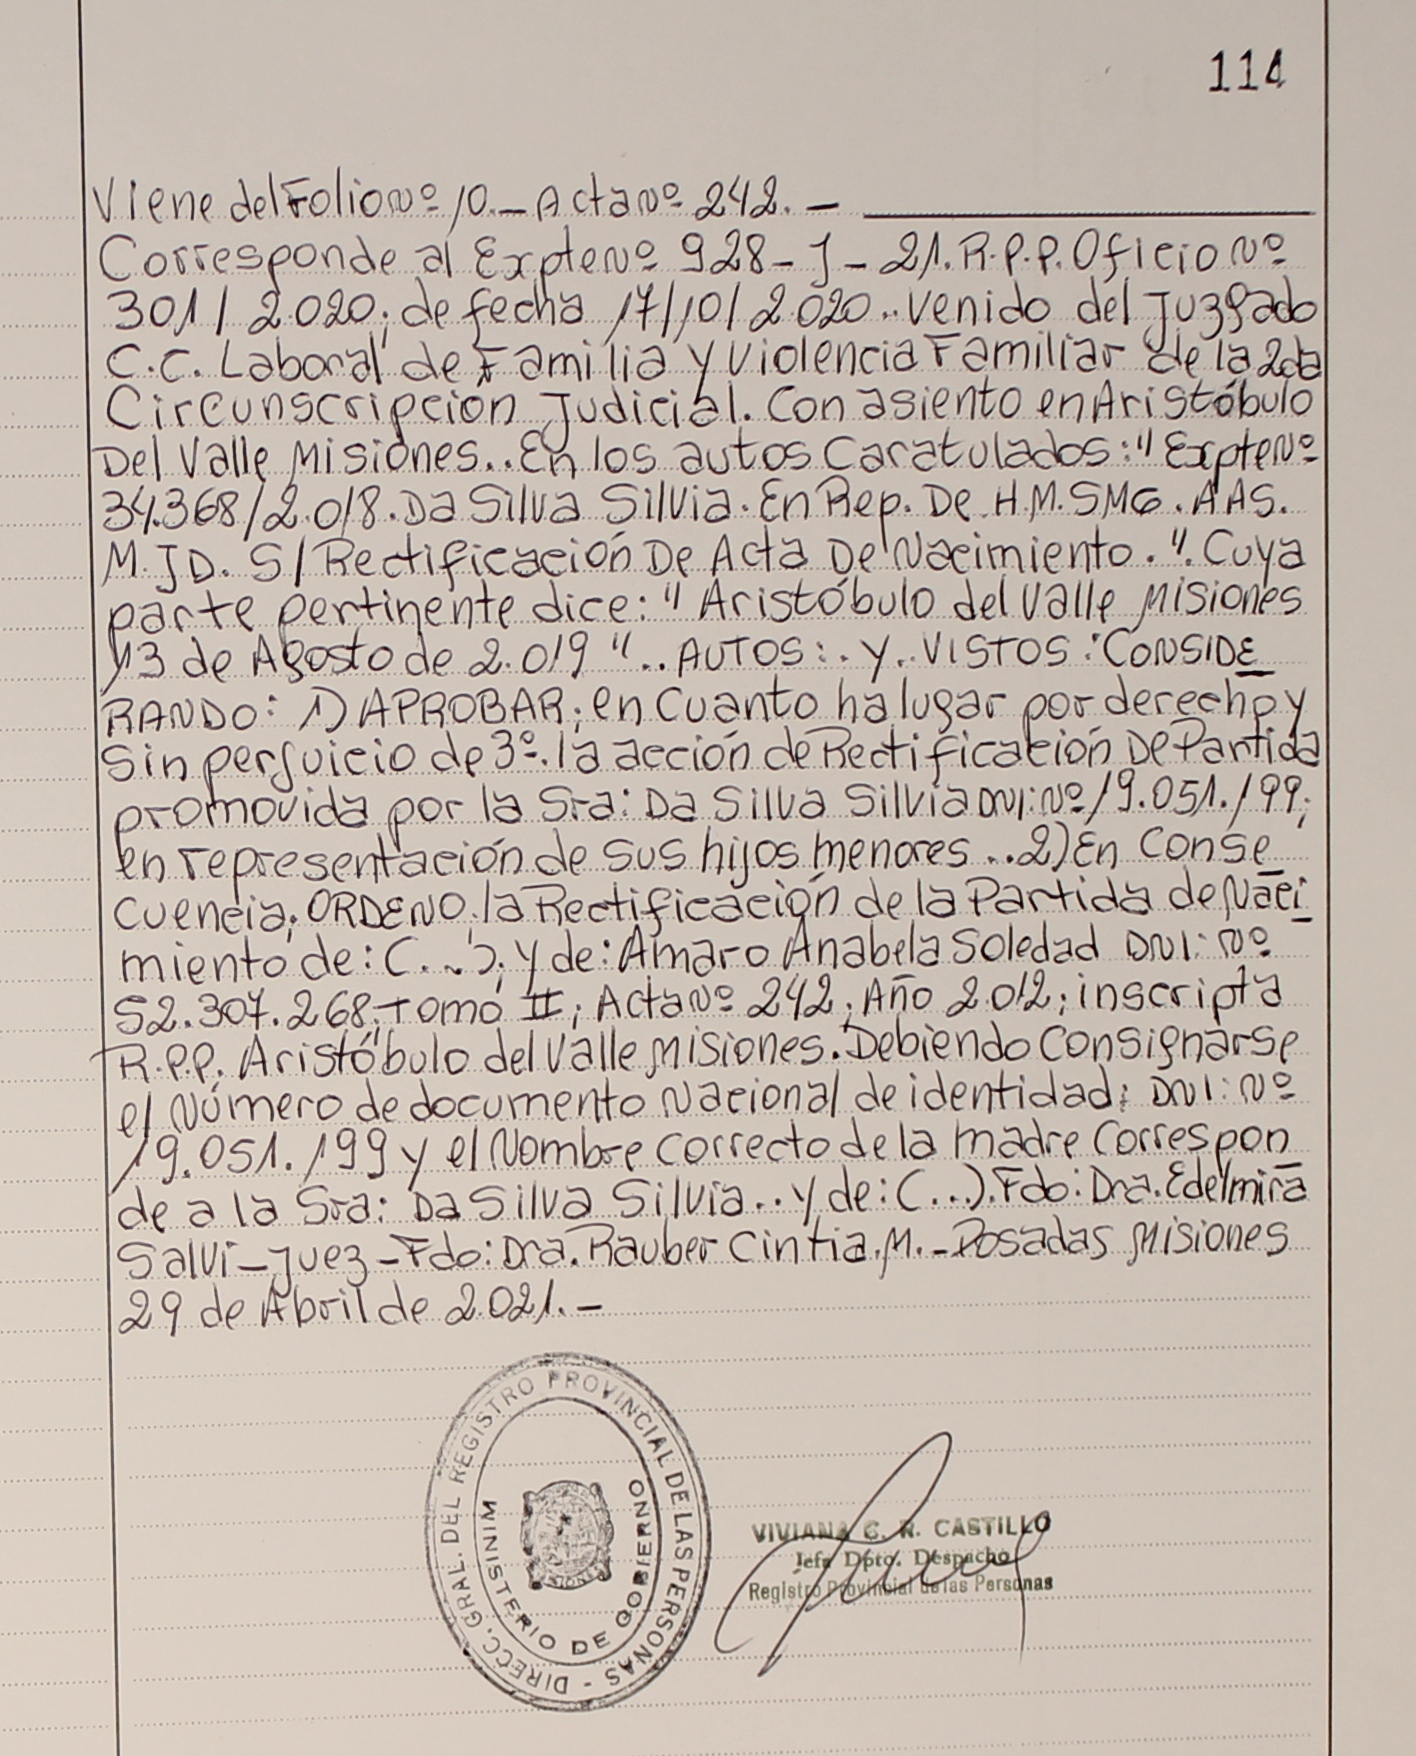 114
Viene del Folio Nº 10.- Acta Nº 242. -
Corresponde al Expte Nº 928-J-21. R.P.P. Oficio Nº
301/2.020; de fecha 17/10/2.020.. Venido del Juzgado
C.C. Laboral de Familia y Violencia Familiar de la 2da
Circunscripcion Judicial. Con asiento en Aristóbulo
Del Valle Misiones.. En los autos Caratulados: "Expte Nº
34.368/2.018. Da Silva Silvia. En Rep. De H.M. SMG. AAS.
M.JD. S/Rectificación De Acta De Nacimiento.". Cuya
parte pertinente dice: "Aristóbulo del Valle Misiones
13 de Agosto de 2.019".. AUTOS:. Y.. VISTOS: CONSIDE
RANDO: 1) APROBAR; en Cuanto ha lugar por derecho y
Sin perjuicio de 3º. la acción de Rectificación De Partida
promovida por la Sra: Da Silva Silvia DNI: Nº 19.051.199;
en representación de sus hijos menores ..2) En Conse
cuencia; ORDENO; la Rectificación de la Partida de Naci
miento de: (...); y de: Amaro Anabela Soledad DNI: Nº
52.307.268; Tomo II; Acta Nº 242; Año 2.012; inscripta
R.P.P. Aristóbulo del Valle Misiones. Debiendo Consignarse
el Número de documento Nacional de identidad; DNI: Nº
19.051.199 y el Nombre correcto de la madre Correspon
de a la Sra: Da Silva Silvia.. y de: (...). Fdo: Dra. Edelmira
Salvi-Juez-Fdo: Dra. Rauber Cintia.M.-Posadas Misiones
29 de Abril de 2.021.-
DIRECC. GRAL. DEL REGISTRO PROVINCIAL DE LAS PERSONAS -
MINISTERIO DE GOBIERNO
VIVIANA C. R. CASTILLO
Jefa Dpto. Despacho
Registro Provincial de las Personas